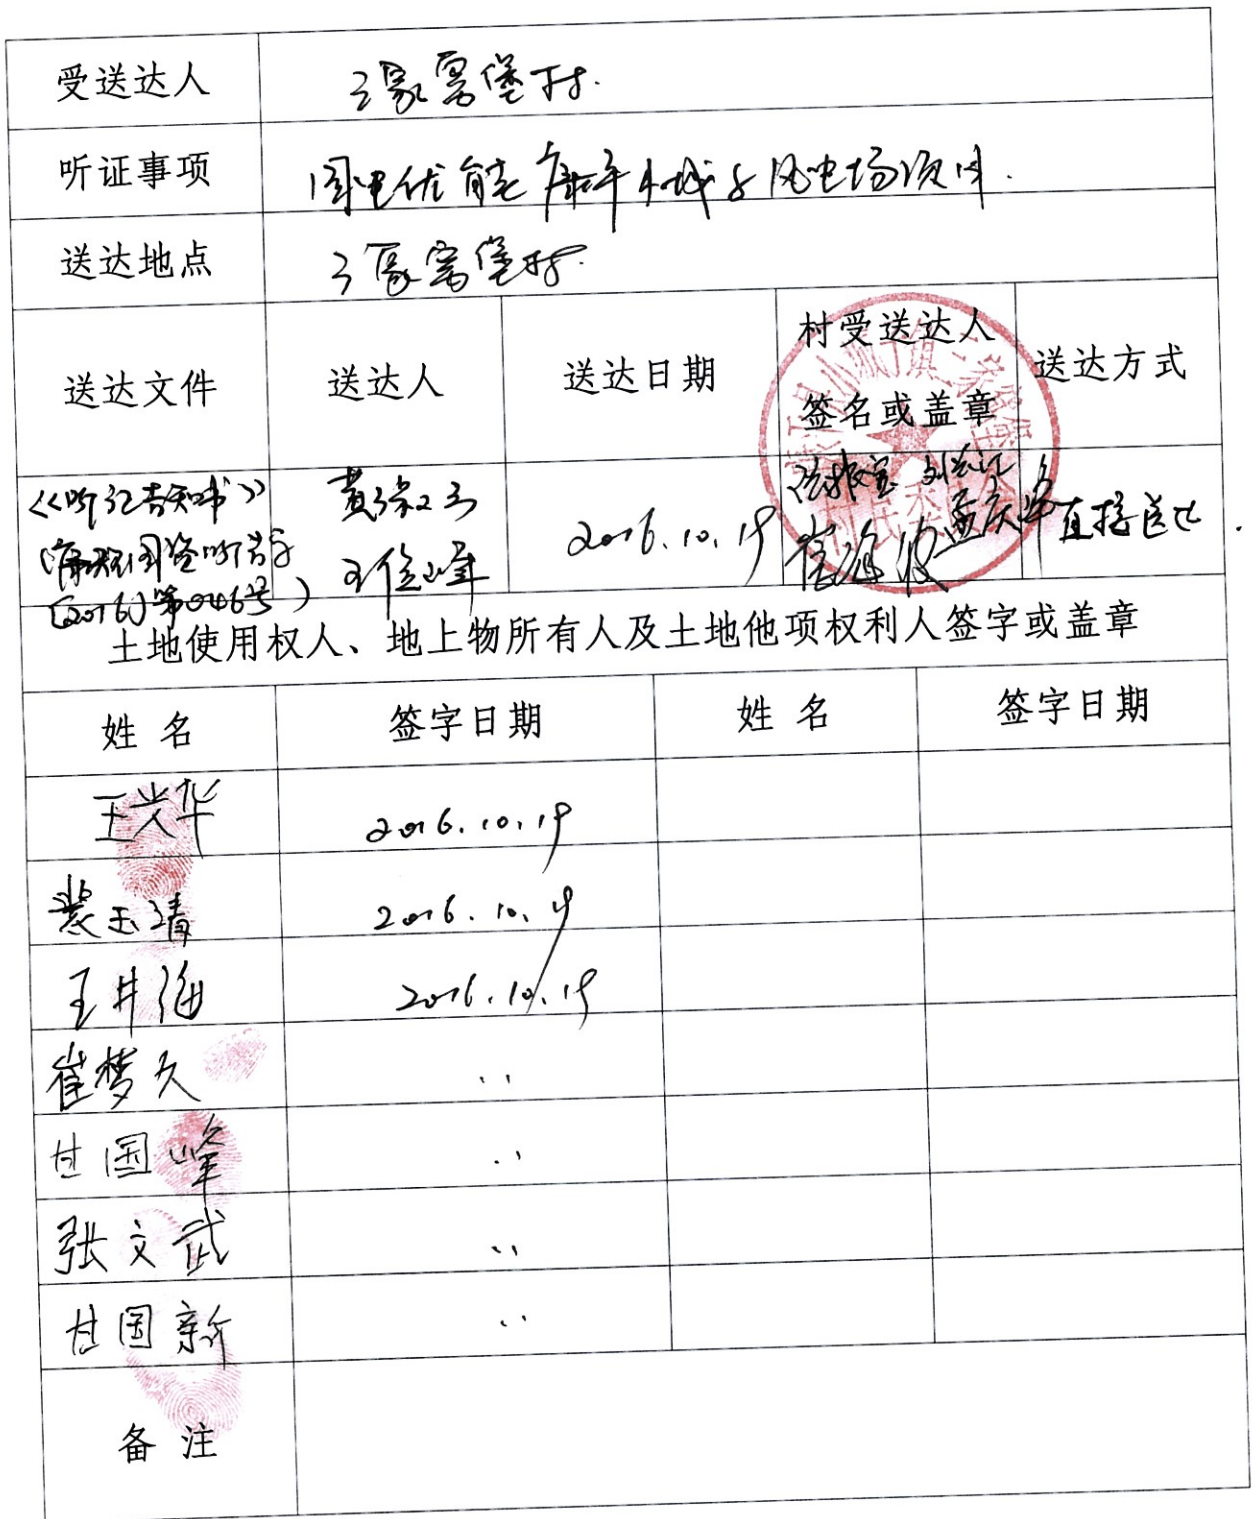 受送达人 三家窝堡村.
听证事项 国电优能康平小城子风电场项目.
送达地点 三家窝堡村.
送达文件 送达人 送达日期 村受送达人 签名或盖章 送达方式
《听证告知书》
国资听告字
(2016)第046号)
2016.10.19
直接送达.
土地使用权人、地上物所有人及土地他项权利人签字或盖章
姓名 签字日期 姓名 签字日期
王兴华 2016.10.19
裴玉清 2016.10.19
王井海 2016.10.19
崔梦久 〃
甘国峰 〃
张文武 〃
甘国新 〃
备注